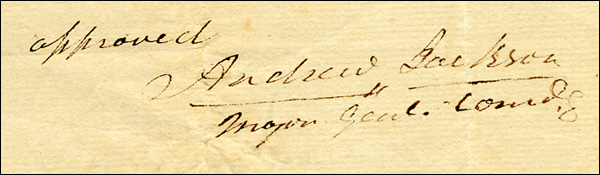 approved
Andrew Jackson
Major Genl. Comdg